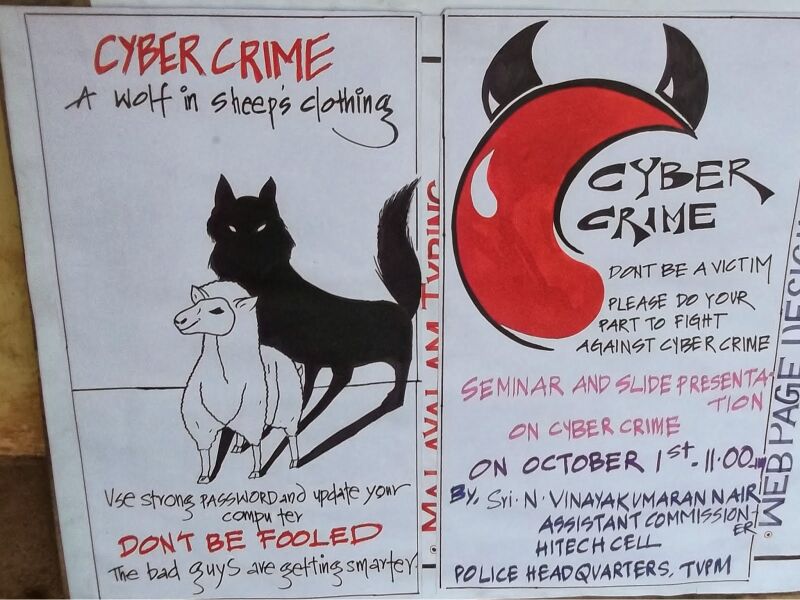 CYBER CRIME
A wolf in sheep's clothing
Use strong PASSWORD and update your
computer
DON'T BE FOOLED
The bad guys are getting smarter.
MALAYALAM TYPING
CYBER
CRIME
DONT BE A VICTIM
PLEASE DO YOUR
PART TO FIGHT
AGAINST CYBER CRIME
SEMINAR AND SLIDE PRESENTA-
TION
ON CYBER CRIME
ON OCTOBER 1st - 11.00
BY, Sri. N. VINAYAKUMARAN NAIR
ASSISTANT COMMISSION-
ER
HITECH CELL
POLICE HEADQUARTERS, TVPM
WEB PAGE DESIGN